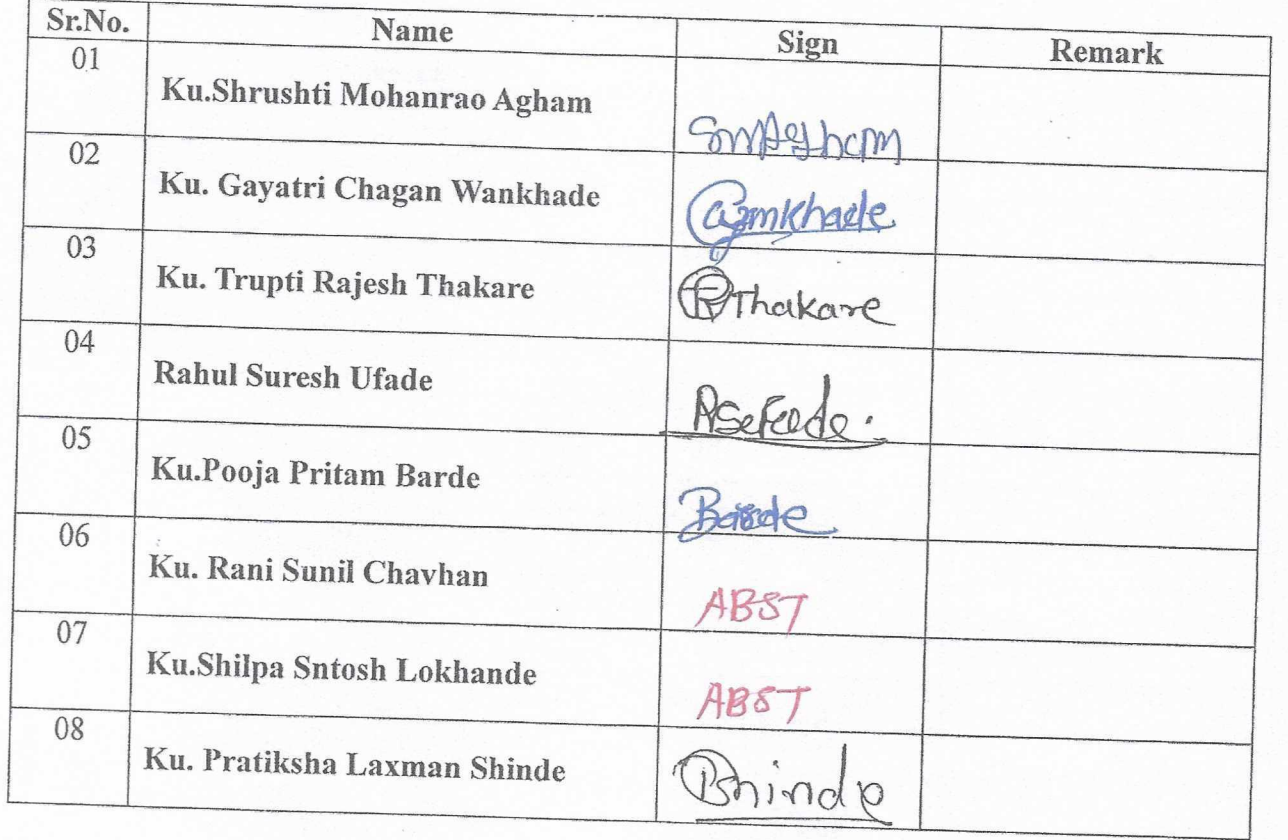 Sr.No. Name Sign Remark
01 Ku.Shrushti Mohanrao Agham SMAgham
02 Ku. Gayatri Chagan Wankhade
03 Ku. Trupti Rajesh Thakare Thakare
04 Rahul Suresh Ufade
05 Ku.Pooja Pritam Barde Barde
06 Ku. Rani Sunil Chavhan ABST
07 Ku.Shilpa Sntosh Lokhande ABST
08 Ku. Pratiksha Laxman Shinde